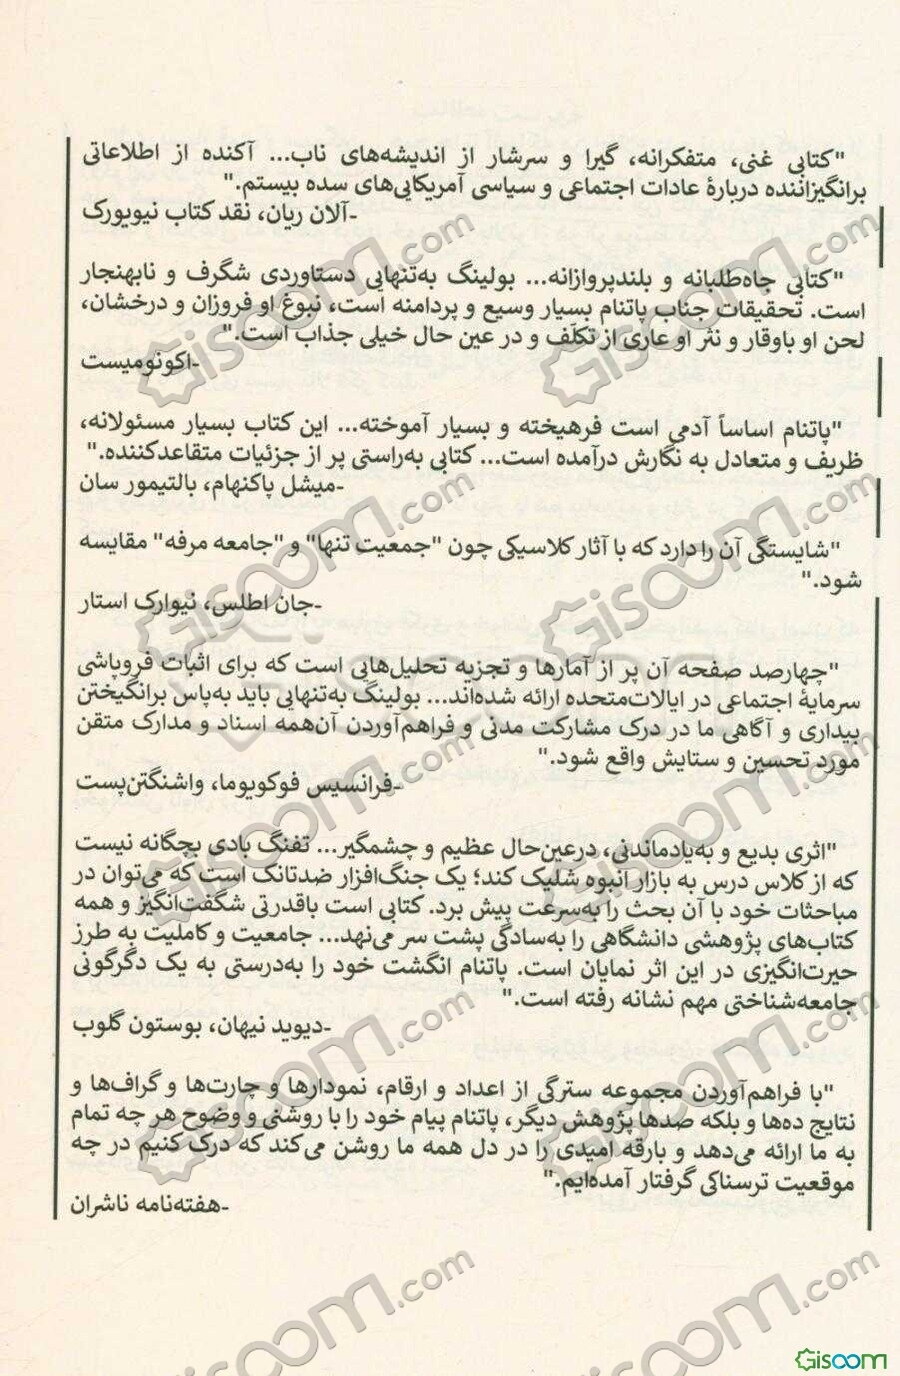 "کتابی غنی، متفکرانه، گیرا و سرشار از اندیشه‌های ناب... آکنده از اطلاعاتی
برانگیزاننده دربارهٔ عادات اجتماعی و سیاسی آمریکایی‌های سده بیستم."
-آلان ریان، نقد کتاب نیویورک
"کتابی جاه‌طلبانه و بلندپروازانه... بولینگ به‌تنهایی دستاوردی شگرف و نابهنجار
است. تحقیقات جناب پاتنام بسیار وسیع و پردامنه است، نبوغ او فروزان و درخشان،
لحن او باوقار و نثر او عاری از تکلّف و در عین حال خیلی جذاب است."
-اکونومیست
"پاتنام اساساً آدمی است فرهیخته و بسیار آموخته... این کتاب بسیار مسئولانه،
ظریف و متعادل به نگارش درآمده است... کتابی به‌راستی پر از جزئیات متقاعدکننده."
-میشل پاکنهام، بالتیمور سان
"شایستگی آن را دارد که با آثار کلاسیکی چون "جمعیت تنها" و "جامعه مرفه" مقایسه
شود."
-جان اطلس، نیوارک استار
"چهارصد صفحه آن پر از آمارها و تجزیه تحلیل‌هایی است که برای اثبات فروپاشی
سرمایهٔ اجتماعی در ایالات‌متحده ارائه شده‌اند... بولینگ به‌تنهایی باید به‌پاس برانگیختن
بیداری و آگاهی ما در درک مشارکت مدنی و فراهم‌آوردن آن‌همه اسناد و مدارک متقن
مورد تحسین و ستایش واقع شود."
-فرانسیس فوکویوما، واشنگتن‌پست
"اثری بدیع و به‌یادماندنی، درعین‌حال عظیم و چشمگیر... تفنگ بادی بچگانه نیست
که از کلاس درس به بازار انبوه شلیک کند؛ یک جنگ‌افزار ضدتانک است که می‌توان در
مباحثات خود با آن بحث را به‌سرعت پیش برد. کتابی است باقدرتی شگفت‌انگیز و همه
کتاب‌های پژوهشی دانشگاهی را به‌سادگی پشت سر می‌نهد... جامعیت و کاملیت به طرز
حیرت‌انگیزی در این اثر نمایان است. پاتنام انگشت خود را به‌درستی به یک دگرگونی
جامعه‌شناختی مهم نشانه رفته است."
-دیوید نیهان، بوستون گلوب
"با فراهم‌آوردن مجموعه سترگی از اعداد و ارقام، نمودارها و چارت‌ها و گراف‌ها و
نتایج ده‌ها و بلکه صدها پژوهش دیگر، پاتنام پیام خود را با روشنی و وضوح هر چه تمام
به ما ارائه می‌دهد و بارقه امیدی را در دل همه ما روشن می‌کند که درک کنیم در چه
موقعیت ترسناکی گرفتار آمده‌ایم."
-هفته‌نامه ناشران
Gisoom